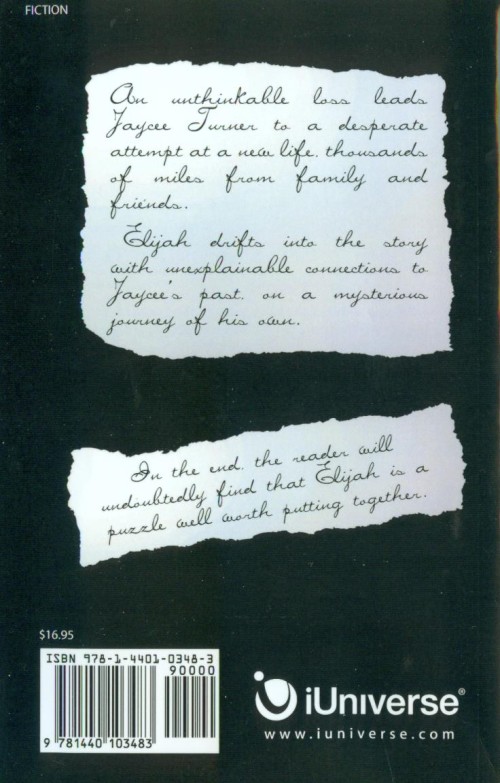 FICTION
An unthinkable loss leads
Jaycee Turner to a desperate
attempt at a new life, thousands
of miles from family and
friends.
Elijah drifts into the story
with unexplainable connections to
Jaycee's past, on a mysterious
journey of his own.
In the end, the reader will
undoubtedly find that Elijah is a
puzzle well worth putting together.
$16.95
ISBN 978-1-4401-0348-3
90000
9 781440 103483
iUniverse®
www.iuniverse.com